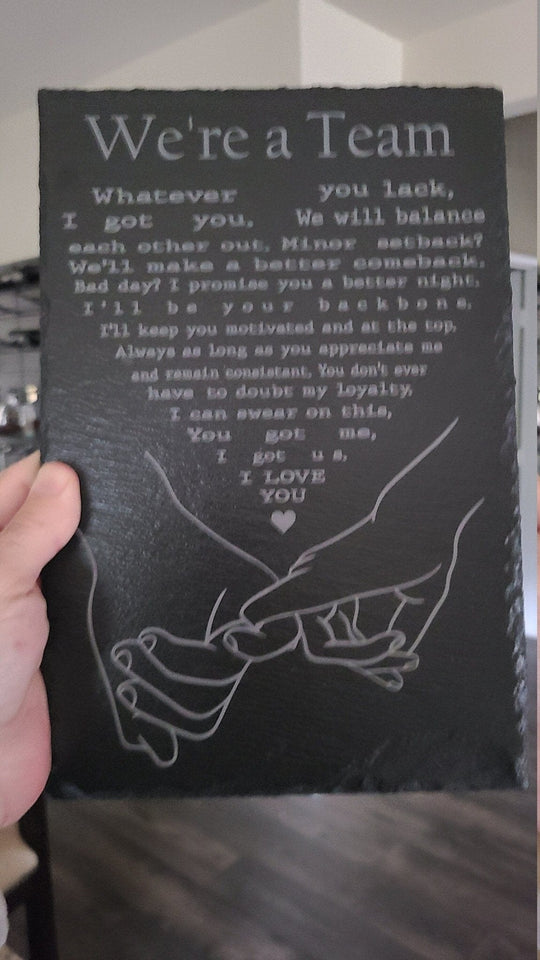 We're a Team
Whatever you lack,
I got you. We will balance
each other out. Minor setback?
We'll make a better comeback.
Bad day? I promise you a better night.
I'll be your backbone.
I'll keep you motivated and at the top.
Always as long as you appreciate me
and remain consistant. You don't ever
have to doubt my loyalty.
I can swear on this,
You got me,
I got us.
I LOVE
YOU